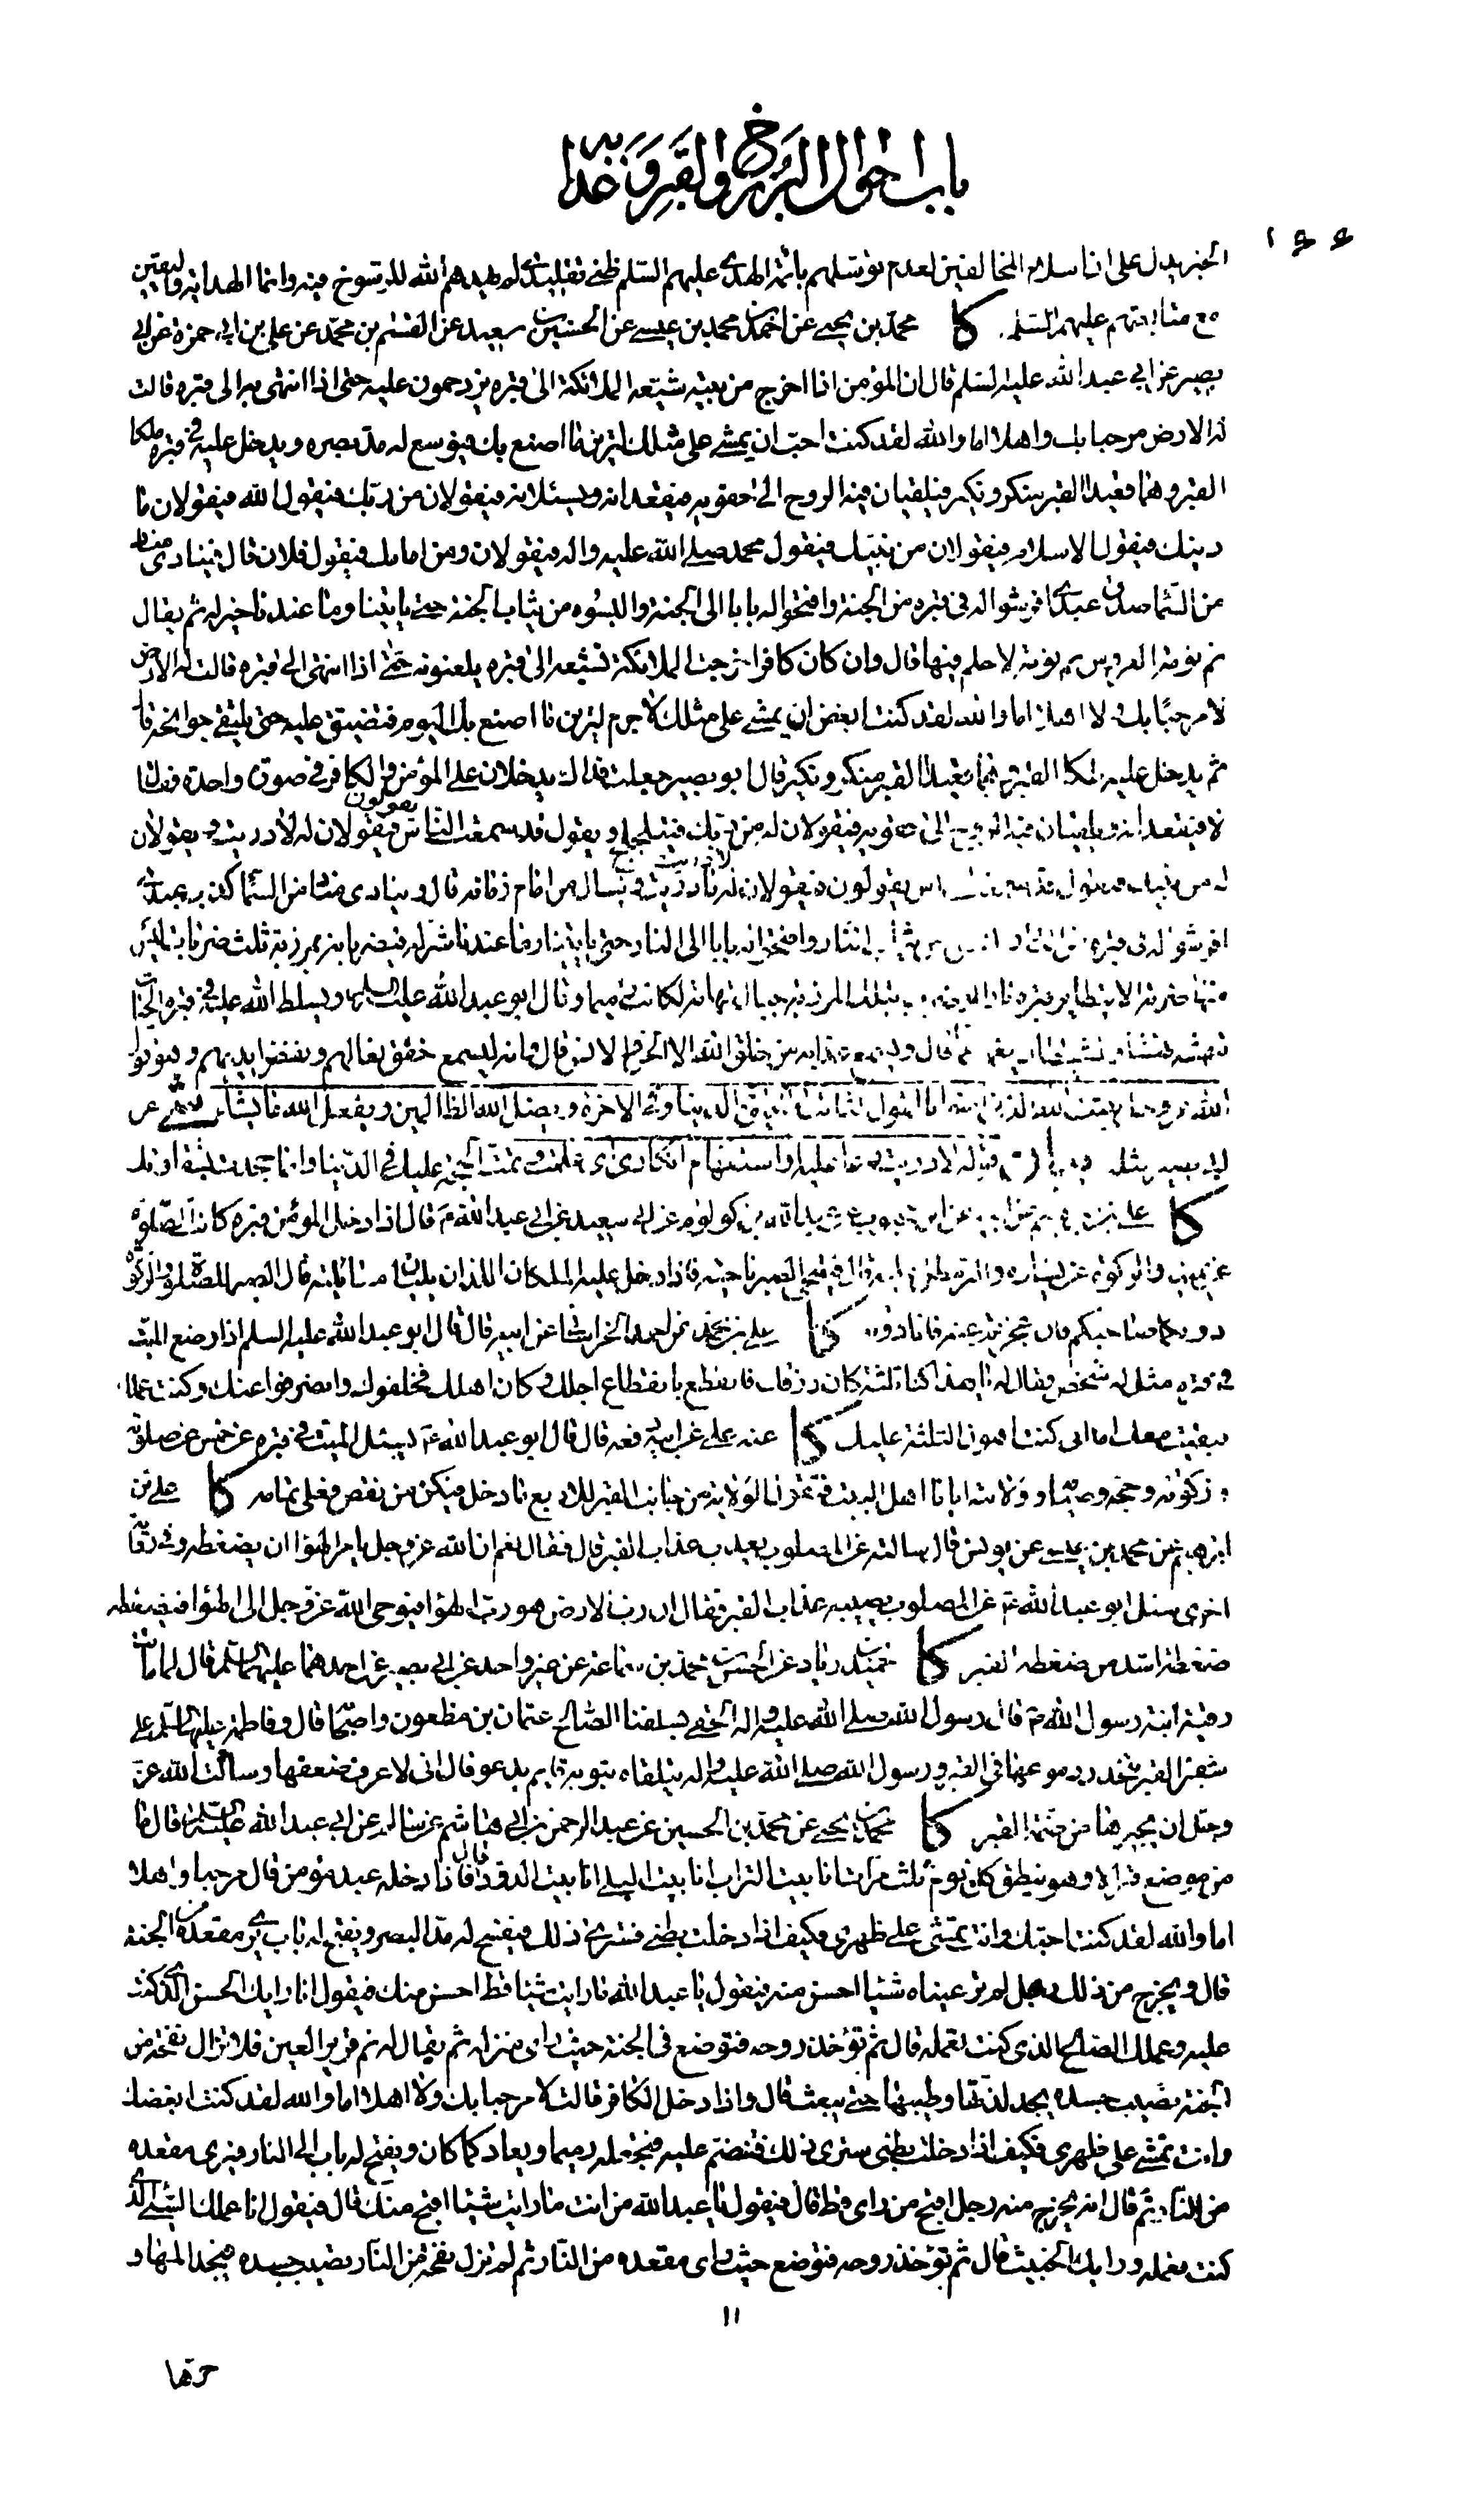 باب احوال البرزخ والقبر وعذابه
١٤٤
الخبر يدل على ان اسلام المخالفين لعدم توسلهم بائمة الهدى عليهم السلم ظني تقليدي لم يهدهم الله للرسوخ فيه وانما الهداية واليقين
مع متابعتهم عليهم السلم. كا محمد بن يحيى عن احمد بن محمد بن عيسى عن الحسين بن سعيد عن القسم بن محمد عن علي بن ابي حمزة عن ابي
بصير عن ابي عبد الله عليه السلم قال ان المؤمن اذا اخرج من بيته شيعته الملائكة الى قبره يزدحمون عليه حتى اذا انتهى به الى قبره قالت
له الارض مرحبا بك واهلا اما والله لقد كنت احب ان يمشي على مثلك لترين ما اصنع بك فيوسع له مد بصره ويدخل عليه في قبره ملكا
القبر وهما قعيدا القبر منكر ونكير فيلقيان فيه الروح الى حقويه فيقعدانه ويسئلانه فيقولان من ربك فيقول الله فيقولان ما
دينك فيقول الاسلام فيقولان من نبيك فيقول محمد صلى الله عليه واله فيقولان ومن امامك فيقول فلان قال فينادي مناد
من السما صدق عبدي افرشوا له في قبره من الجنة وافتحوا له بابا الى الجنة والبسوه من ثياب الجنة حتى ياتينا وما عندنا خير له ثم يقال
نم نومة العروس نم نومة لا حلم فيها قال وان كان كافرا خرجت الملائكة تشيعه الى قبره يلعنونه حتى اذا انتهى الى قبره قالت له الارض
لا مرحبا بك ولا اهلا اما والله لقد كنت ابغض ان يمشي على مثلك لا جرم لترين ما اصنع بك اليوم فتضيق عليه حتى يلتقي جوانحه قال
ثم يدخل عليه ملكا القبر وهما قعيدا القبر منكر ونكير قال ابو بصير جعلت فداك يدخلان على المؤمن والكافر في صورة واحدة فقال
لا فيقعدانه ويلقيان فيه الروح الى حقويه فيقولان له من ربك فيتلجلج ويقول قد سمعت الناس يقولون فيقولان له لا دريت ويقولان
له من نبيك فيقول قد سمعت الناس يقولون فيقولان له لا دريت ويسال عن امام زمانه قال وينادي مناد من السما كذب عبدي
افرشوا له في قبره من النار والبسوه من ثياب النار وافتحوا له بابا الى النار حتى ياتينا وما عندنا شر له فيضربانه بمرزبة ثلث ضربات ليس
منها ضربة الا يتطاير قبره نارا لو ضرب بتلك المرزبة جبال تهامة لكانت رميما وقال ابو عبد الله عليه السلم ويسلط الله عليه في قبره الحيات
تنهشه نهشا والشيطان يغمه غما قال ويسمع عذابه من خلق الله الا الجن والانس قال وانه ليسمع خفق نعالهم ونفض ايديهم وهو قول
الله عز وجل يثبت الله الذين امنوا بالقول الثابت في الحيوة الدنيا وفي الاخرة ويضل الله الظالمين ويفعل الله ما يشاء
كا
عن يمينه والزكوة عن يساره والبر
دونكما صاحبكم فان عجزتما عنه فانا دونه كا علي بن محمد عن محمد بن احمد الخراساني عن ابيه قال قال ابو عبد الله عليه السلم اذا وضع الميت
في قبره مثل له شخص فقال له يا هذا كنا ثلثة كان رزقك فانقطع بانقطاع اجلك وكان اهلك فخلفوك وانصرفوا عنك وكنت عملك
فبقيت معك اما اني كنت اهون الثلثة عليك كا عنه عن ابيه رفعه قال قال ابو عبد الله ع يسئل الميت في قبره عن خمس عن صلوته
وزكوته وحجه وصيامه وولايته ايانا اهل البيت فتقول الولاية من جانب القبر للاربع ما دخل فيكن من نقص فعلي تمامه كا علي بن
ابرهيم عن محمد بن عيسى عن يونس قال سالته عن المصلوب يعذب عذاب القبر قال فقال نعم ان الله عز وجل يامر الهوا ان يضغطه وفي رواية
اخرى سئل ابو عبد الله ع عن المصلوب يصيبه عذاب القبر فقال ان رب الارض هو رب الهوا فيوحي الله عز وجل الى الهوا فيضغطه
ضغطة اشد من ضغطة القبر كا حميد بن زياد عن الحسن بن محمد بن سماعة عن غير واحد عن ابي بصير عن احدهما عليهما السلم قال لما ماتت
رقية ابنة رسول الله ص قال رسول الله صلى الله عليه واله الحقي بسلفنا الصالح عثمان بن مظعون واصحابه قال وفاطمة عليها السلم على
شفير القبر تنحدر دموعها في القبر ورسول الله صلى الله عليه واله يتلقاه بثوبه قايم يدعو قال اني لاعرف ضعفها وسالت الله عز
وجل ان يجيرها من ضمة القبر كا محمد بن يحيى عن محمد بن الحسين عن عبد الرحمن بن ابي هاشم عن سالم عن ابي عبد الله عليه السلم قال ما
من موضع قبر الا وهو ينطق كل يوم ثلث مرات انا بيت التراب انا بيت البلى انا بيت الدود قال فاذا دخله عبد مؤمن قال مرحبا واهلا
اما والله لقد كنت احبك وانت تمشي على ظهري فكيف اذا دخلت بطني فسترى ذلك فيفسح له مد البصر ويفتح له باب يرى مقعده من الجنة
قال ويخرج من ذلك رجل لم تر عيناه شيئا احسن منه فيقول يا عبد الله ما رايت شيئا قط احسن منك فيقول انا رايك الحسن الذي كنت
عليه وعملك الصالح الذي كنت تعمله قال ثم تؤخذ روحه فتوضع في الجنة حيث راى منزله ثم يقال له نم قرير العين فلا تزال نفحة من
الجنة تصيب جسده يجد لذتها وطيبها حتى يبعث قال واذا دخل الكافر قالت لا مرحبا بك ولا اهلا اما والله لقد كنت ابغضك
وانت تمشي على ظهري فكيف اذا دخلت بطني سترى ذلك فتضم عليه فتجعله رميما ويعاد كما كان ويفتح له باب الى النار فيرى مقعده
من النار ثم قال انه يخرج منه رجل اقبح من راى قط قال فيقول يا عبد الله من انت ما رايت شيئا اقبح منك قال فيقول انا عملك السيئ الذي
كنت تعمله ورايك الخبيث قال ثم تؤخذ روحه فتوضع حيث راى مقعده من النار ثم لم تزل نفحة من النار تصيب جسده فيجد المها و
١١
حرها